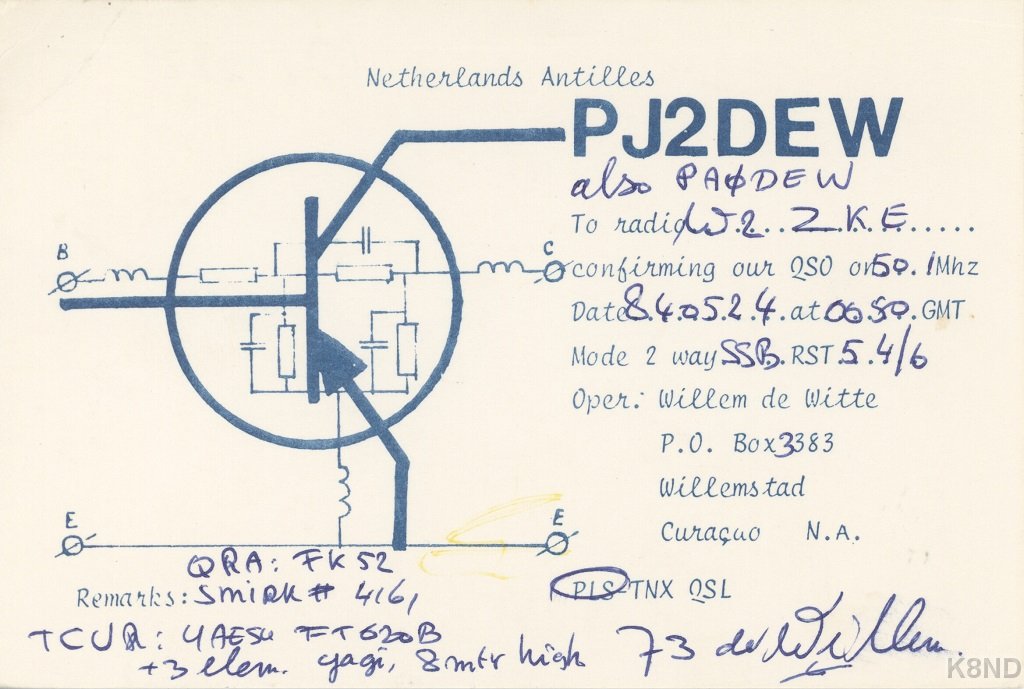 Netherlands Antilles
PJ2DEW
also PAØDEW
To radio W.2..Z.K.E.....
B
C
confirming our QSO on 50.1Mhz
Date 8.4.05.2.4.at 00.50.GMT
Mode 2 way SSB.RST 5.4/6
Oper.: Willem de Witte
P.O. Box 3383
Willemstad
Curaçuo N.A.
E
E
QRA: FK52
PLS TNX QSL
Remarks: SMIRK # 4161
TCVR: YAESU FT620B
+3 elem. yagi, 8 mtr high
73 de Willem.
K8ND